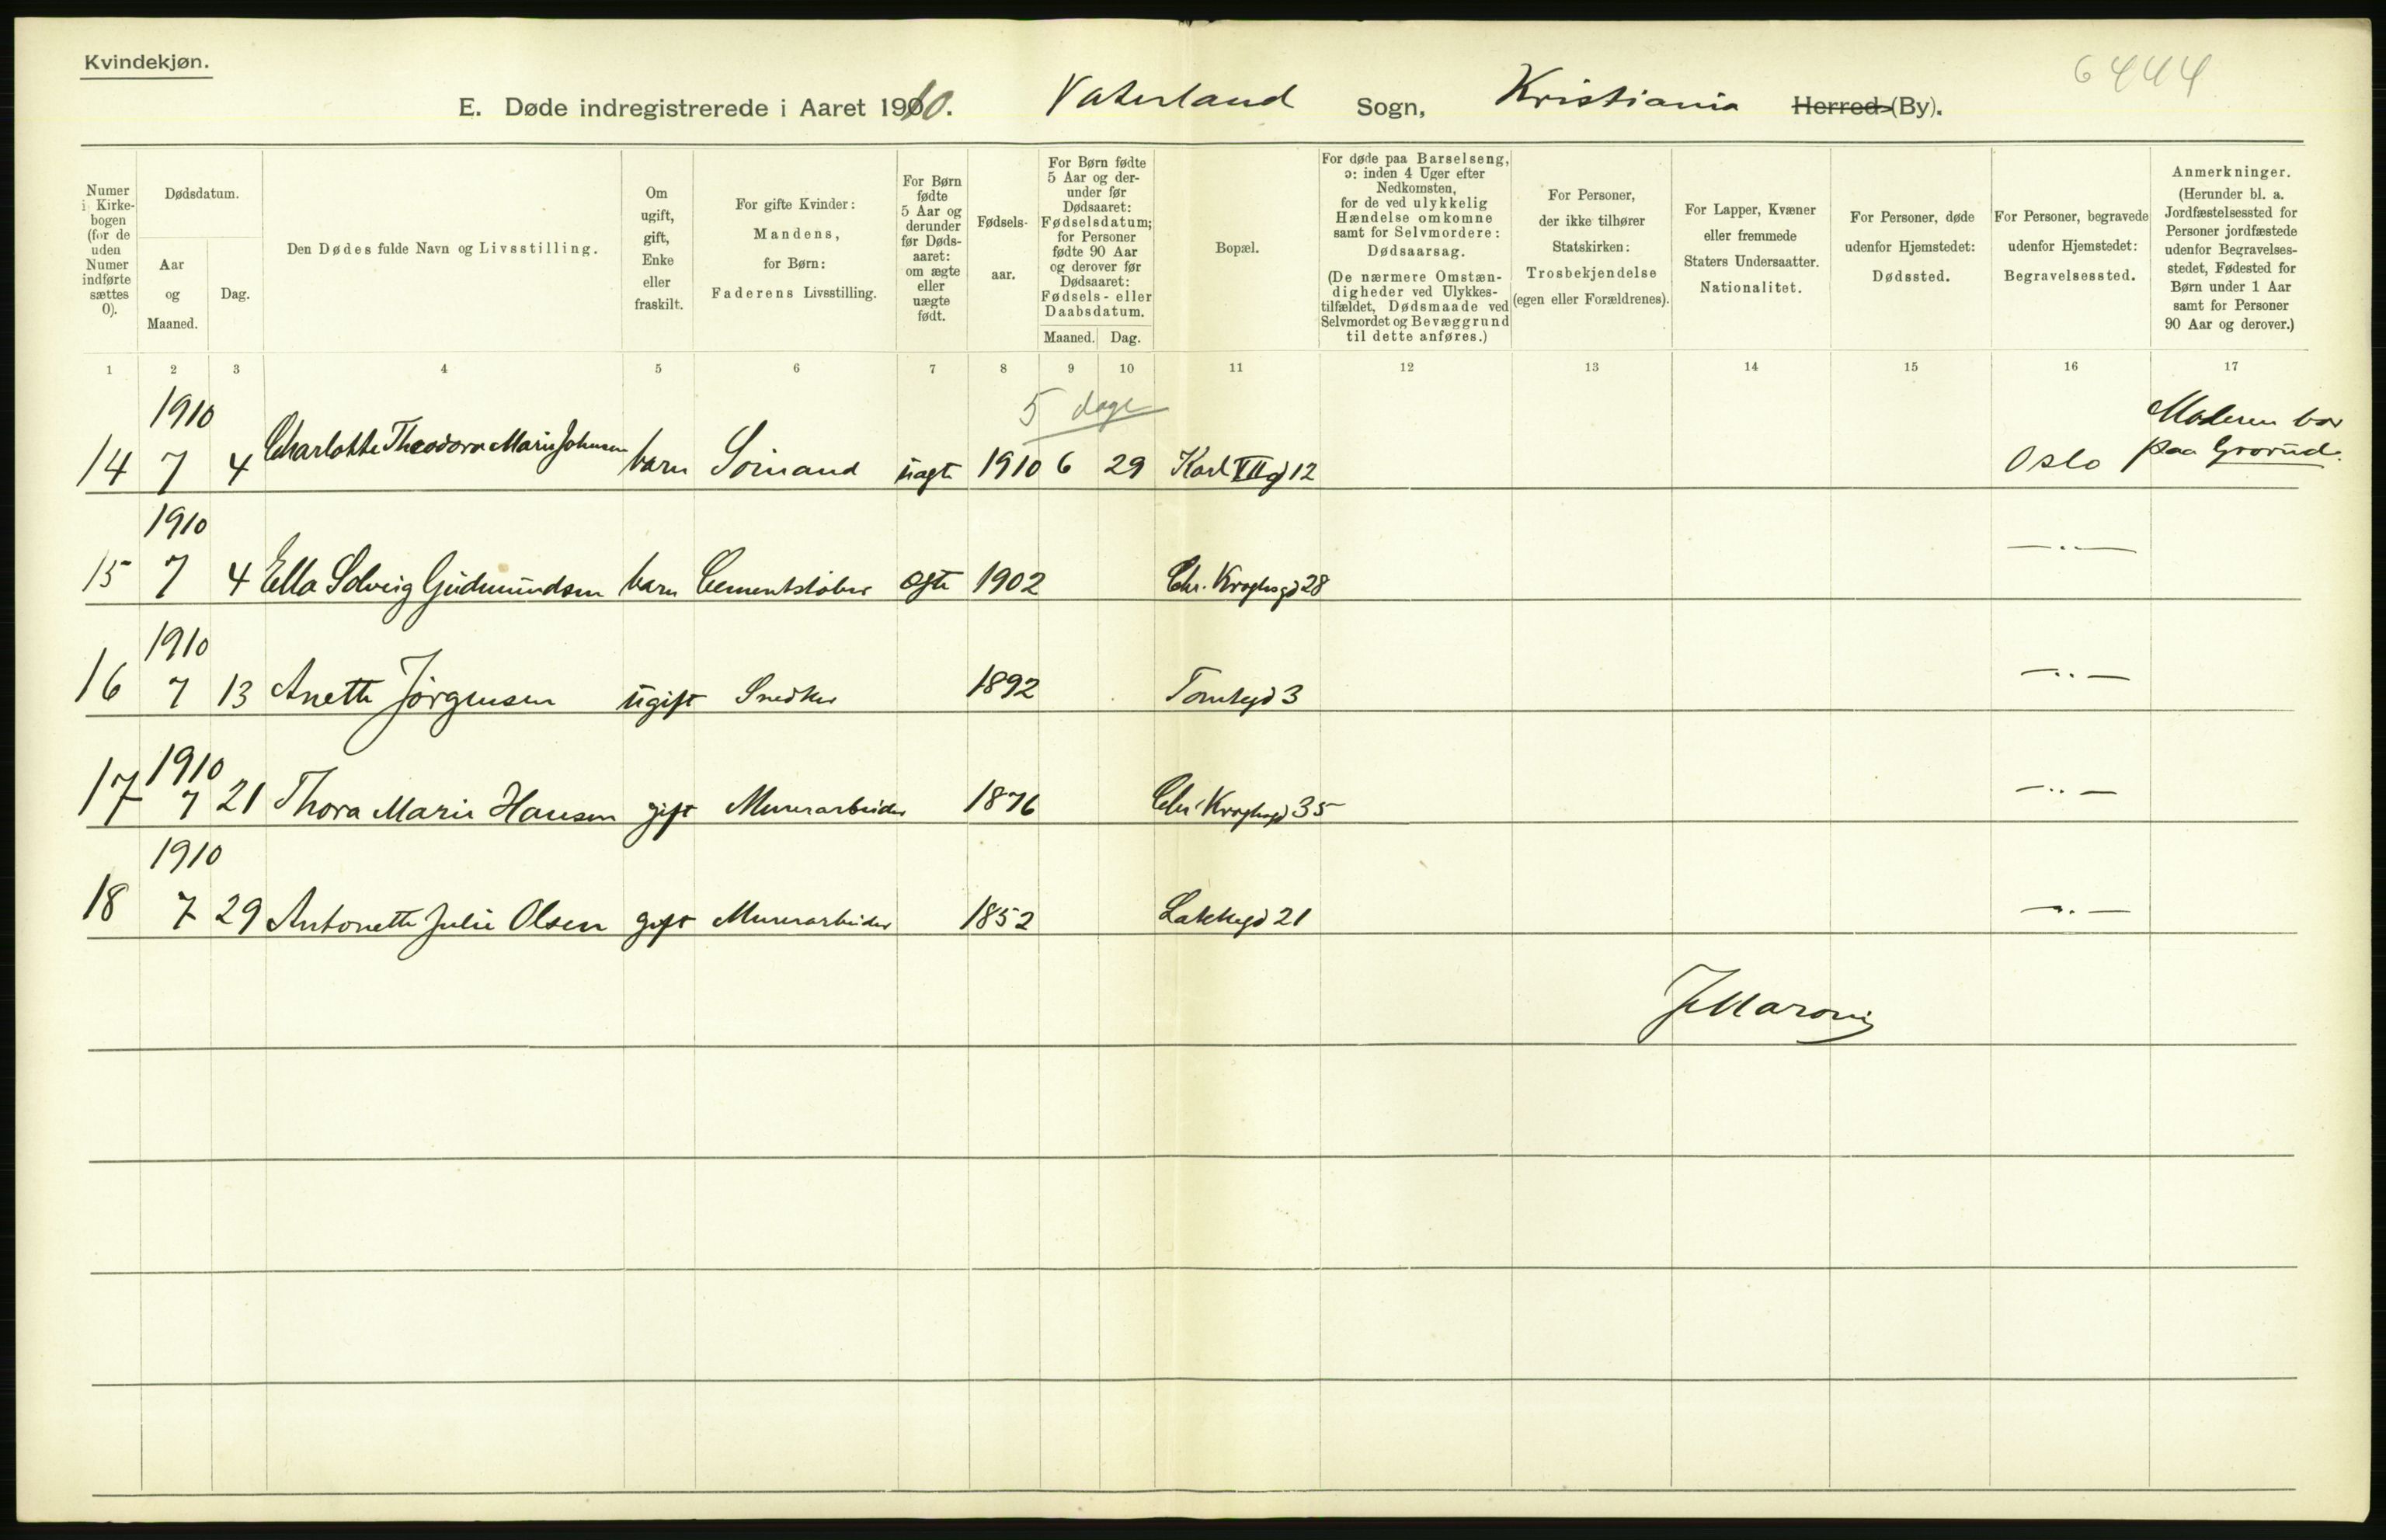 Kvindekjøn.
6444
E. Døde indregistrerede i Aaret 1910. Vaterland Sogn, Kristiania Herred (By).
Numer i Kirkebogen (for de uden Numer indførte sættes 0).
Dødsdatum.
Aar og Maaned.
Dag.
Den Dødes fulde Navn og Livsstilling.
Om ugift, gift, Enke eller fraskilt.
For gifte Kvinder: Mandens, for Børn: Faderens Livsstilling.
For Børn fødte 5 Aar og derunder før Dødsaaret: om ægte eller uægte født.
Fødselsaar.
For Børn fødte 5 Aar og derunder før Dødsaaret: Fødselsdatum; for Personer fødte 90 Aar og derover før Dødsaaret: Fødsels- eller Daabsdatum.
Maaned. Dag.
Bopæl.
For døde paa Barselseng, ɔ: inden 4 Uger efter Nedkomsten, for de ved ulykkelig Hændelse omkomne samt for Selvmordere: Dødsaarsag.
(De nærmere Omstændigheder ved Ulykkestilfældet, Dødsmaade ved Selvmordet og Bevæggrund til dette anføres.)
For Personer, der ikke tilhører Statskirken: Trosbekjendelse (egen eller Forældrenes).
For Lapper, Kvæner eller fremmede Staters Undersaatter. Nationalitet.
For Personer, døde udenfor Hjemstedet: Dødssted.
For Personer, begravede udenfor Hjemstedet: Begravelsessted.
Anmerkninger.
(Herunder bl. a. Jordfæstelsessted for Personer jordfæstede udenfor Begravelsesstedet, Fødested for Børn under 1 Aar samt for Personer 90 Aar og derover.)
1 2 3 4 5 6 7 8 9 10 11 12 13 14 15 16 17
5 dage
1910
14 7 4 Charlotte Theodora Marie Johnsen barn Sömand uægte 1910 6 29 Karl XII gd 12 Oslo Moderen bor paa Grorud.
1910
15 7 4 Ella Solveig Gudmundsen barn Cementstøber ægte 1902 Chr. Kroghsgd 28 —"—
1910
16 7 13 Anette Jörgensen ugift Snedker 1892 Tomtegd 3 —"—
1910
17 7 21 Thora Marie Hansen gift Murerarbeider 1876 Chr. Kroghsgd 35 —"—
1910
18 7 29 Antonette Julie Olsen gift Murerarbeider 1852 Lakkegd 21 —"—
J Maroni